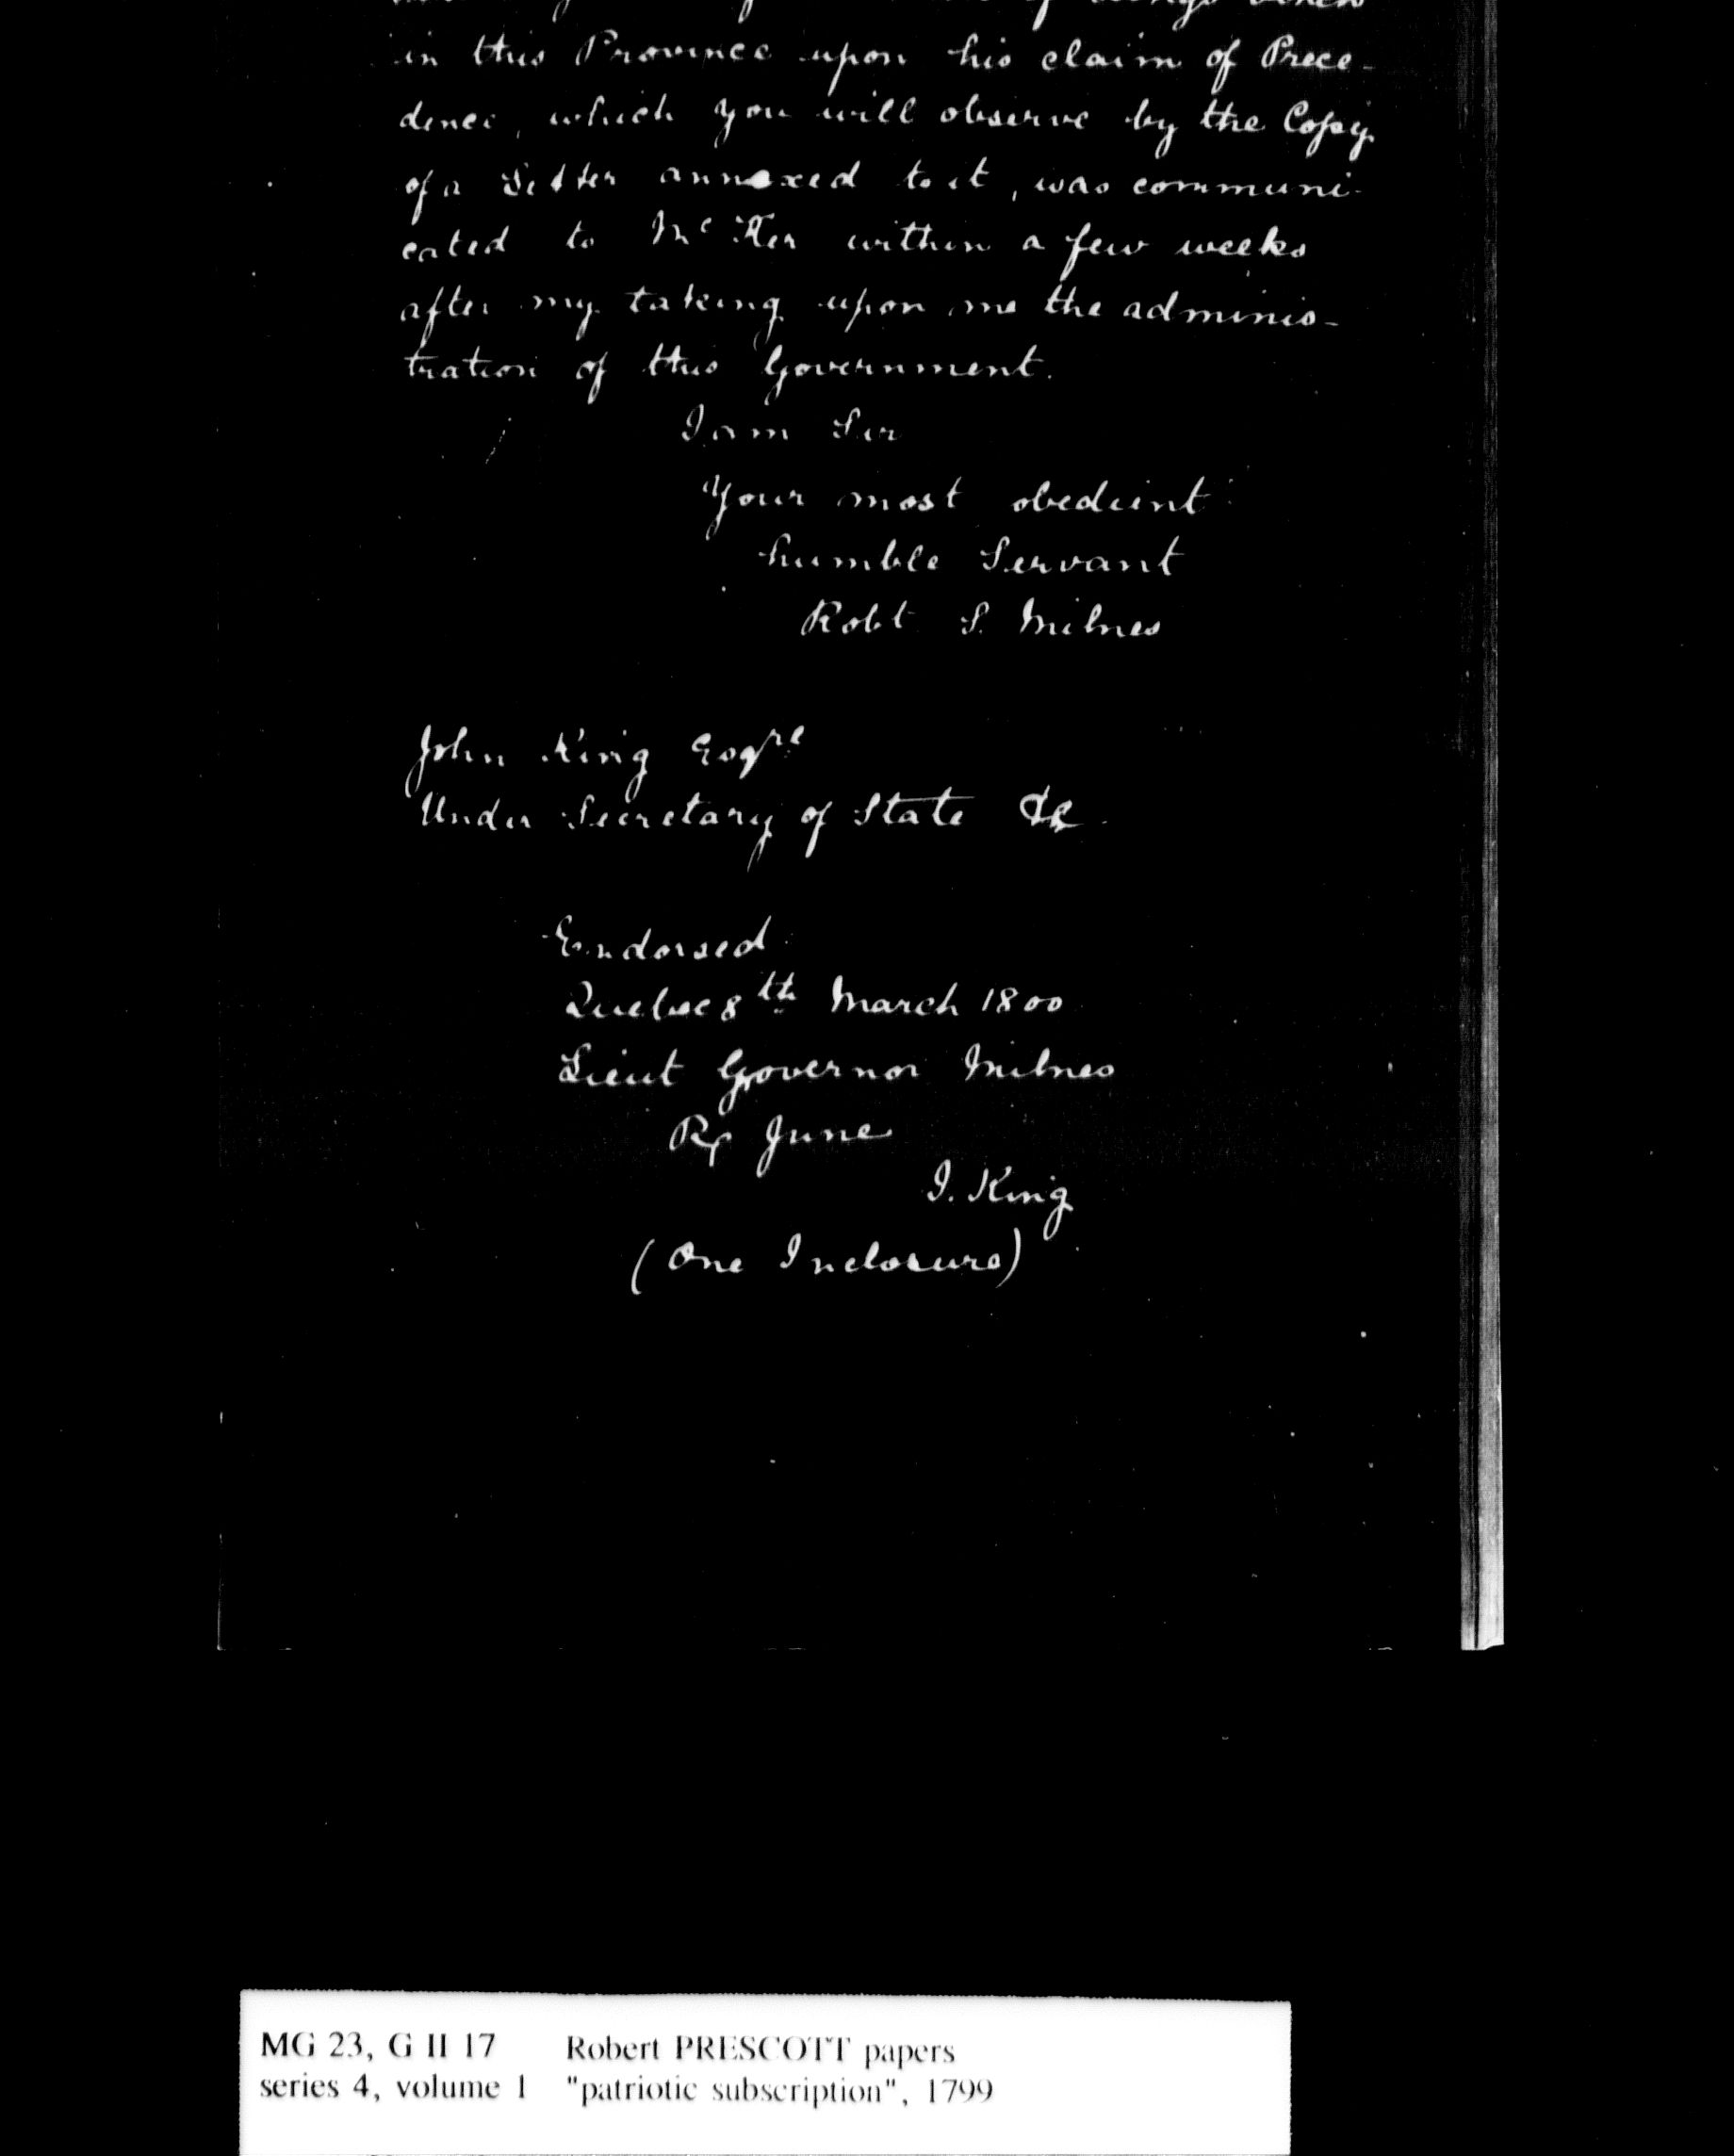 in this Province upon his claim of Prece-
dence, which you will observe by the Copy
of a Letter annexed to it, was communi-
cated to Mc Ker within a few weeks
after my taking upon me the adminis-
tration of this Government.
I am Sir
Your most obedient
humble Servant
Robt S. Milnes
John King Esqre
Under Secretary of State &c.
Endorsed
Quebec 8th March 1800
Lieut Governor Milnes
Rx June
J. King
(One Inclosure)
MG 23, G II 17 Robert PRESCOTT papers
series 4, volume 1 "patriotic subscription", 1799